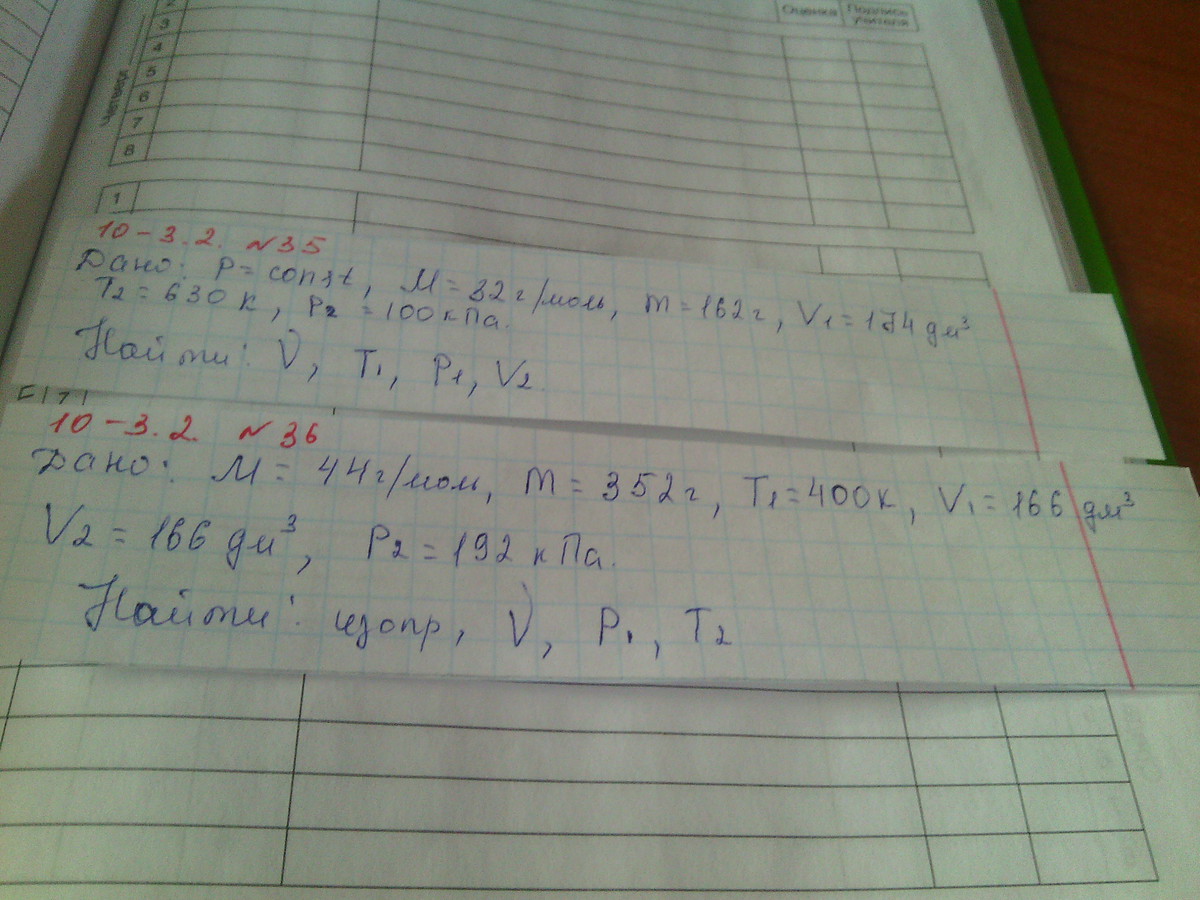 2
3
4
5
6
7
8
Четверг
Оценка
Подпись учителя
1
10-3.2. №35
Дано: P=const, M=32г/моль, m=162г, V1=174 дм³
T2=630K, P2=100кПа.
Найти: ν, T1, P1, V2.
10-3.2. №36
Дано: M=44г/мол, m=352г, T1=400K, V1=166 дм³
V2=166 дм³, P2=192 кПа.
Найти: изопр, ν, P1, T2